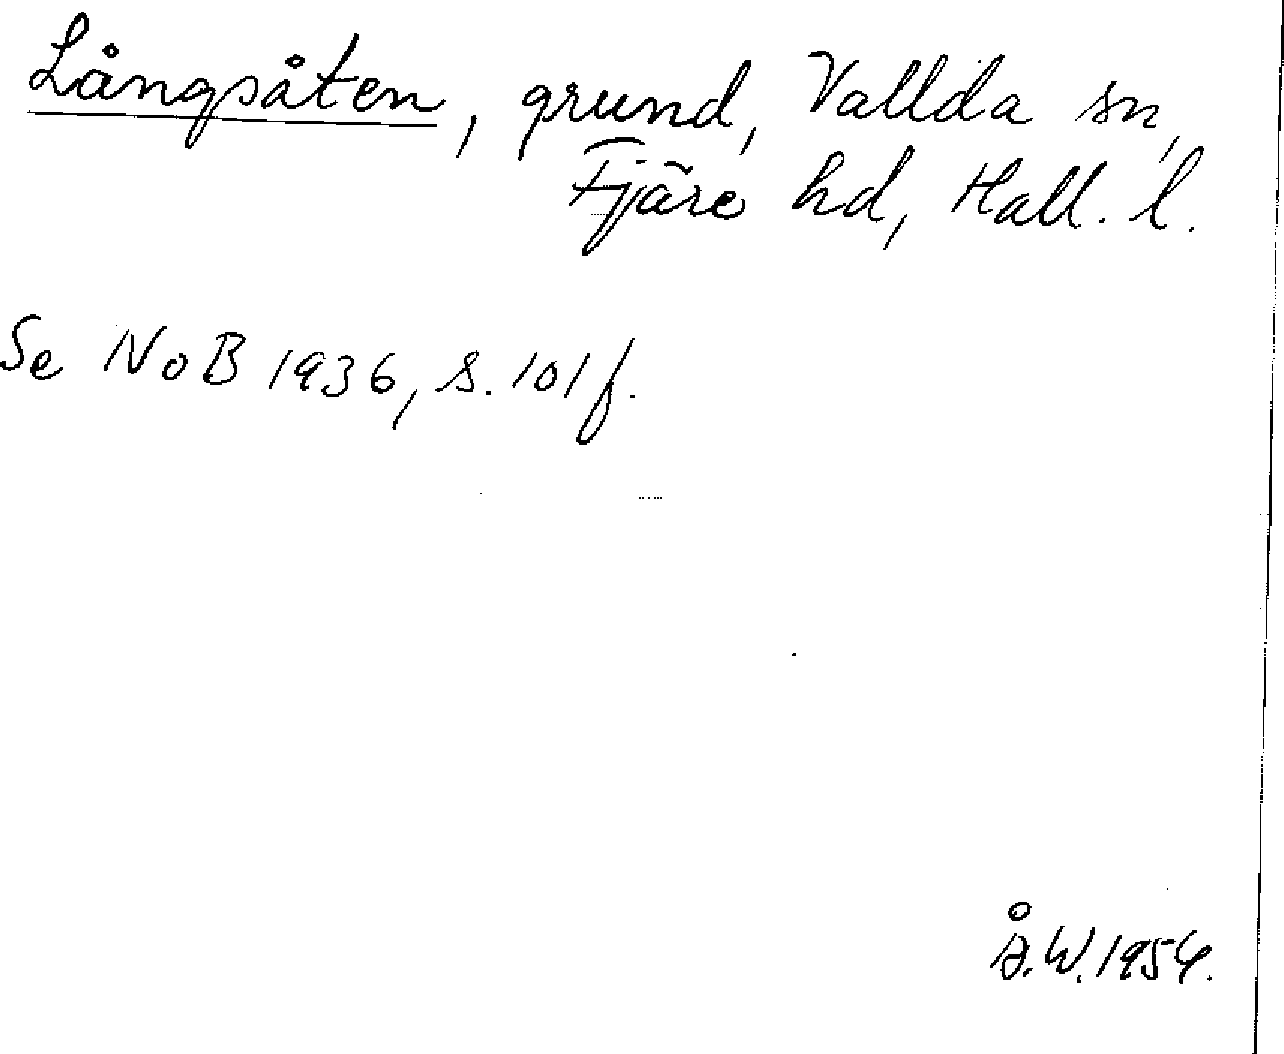 Långsåten, grund, Vallda sn,
Fjäre hd, Hall. l.
Se NoB 1936, s. 101 f.
Å.W. 1954.